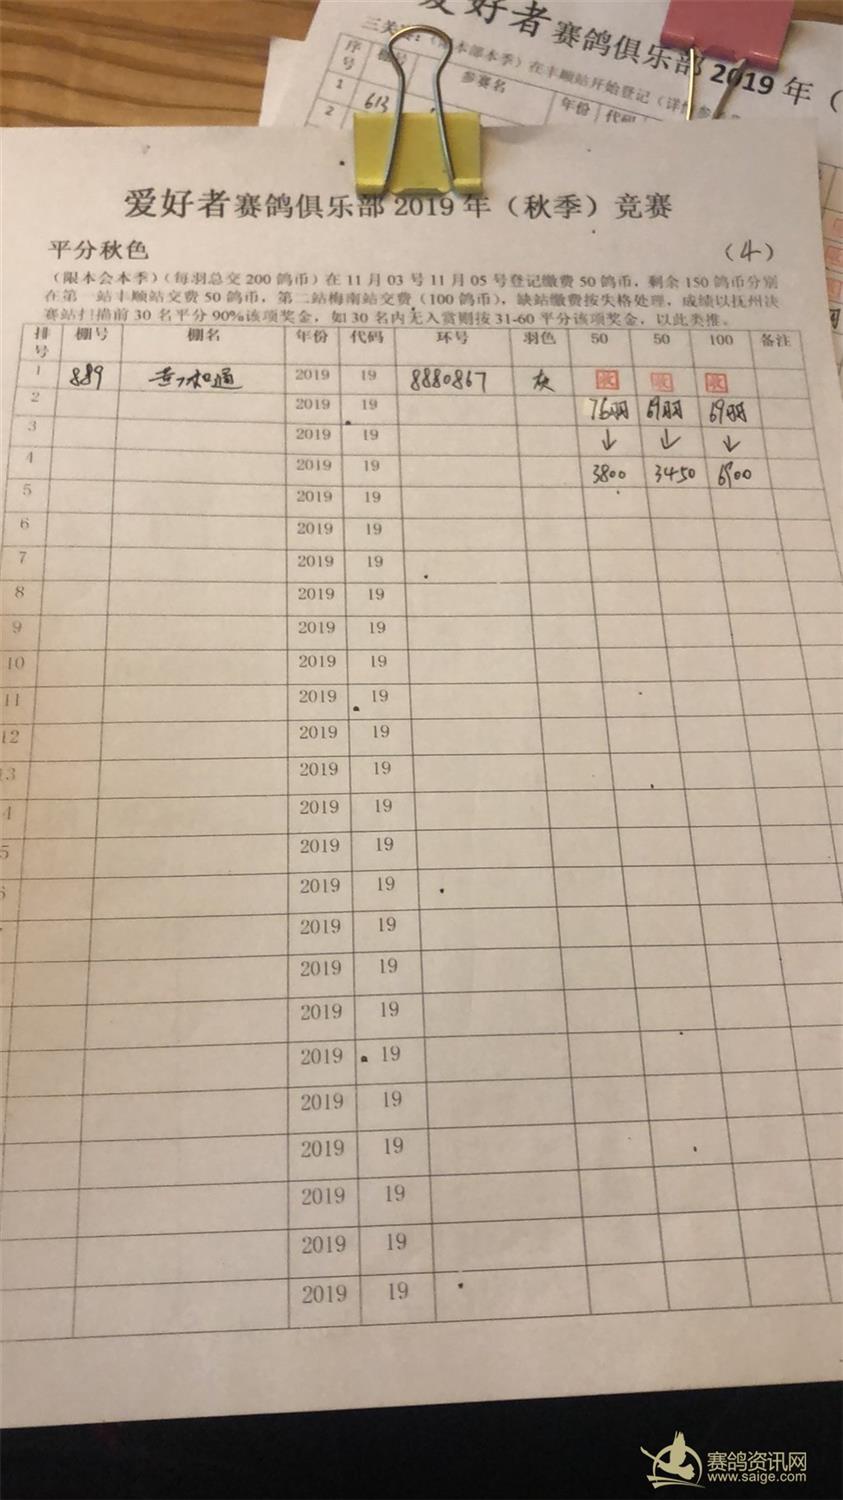 爱好者赛鸽俱乐部 2019 年（
三关赛：（限本部本季）在丰顺站开始登记（详情参
序号 棚号 参赛名 年份 代码
1 613
2
爱好者赛鸽俱乐部 2019 年（秋季）竞赛
平分秋色 （4）
（限本会本季）（每羽总交 200 鸽币）在 11 月 03 号 11 月 05 号登记缴费 50 鸽币，剩余 150 鸽币分别
在第一站丰顺站交费 50 鸽币，第二站梅南站交费（100 鸽币），缺站缴费按失格处理，成绩以抚州决
赛站扫描前 30 名平分 90%该项奖金，如 30 名内无入赏则按 31-60 平分该项奖金，以此类推。
排号 棚号 棚名 年份 代码 环号 羽色 50 50 100 备注
1 889 2019 19 8880867 灰 收 收 收
2 2019 19 76羽 69羽 69羽
3 2019 19 ↓ ↓ ↓
4 2019 19 3800 3450 6900
5 2019 19
6 2019 19
7 2019 19
8 2019 19
9 2019 19
10 2019 19
11 2019 19
12 2019 19
13 2019 19
4 2019 19
5 2019 19
2019 19
2019 19
2019 19
2019 19
2019 19
2019 19
2019 19
2019 19
2019 19
2019 19
赛鸽资讯网
www.saige.com